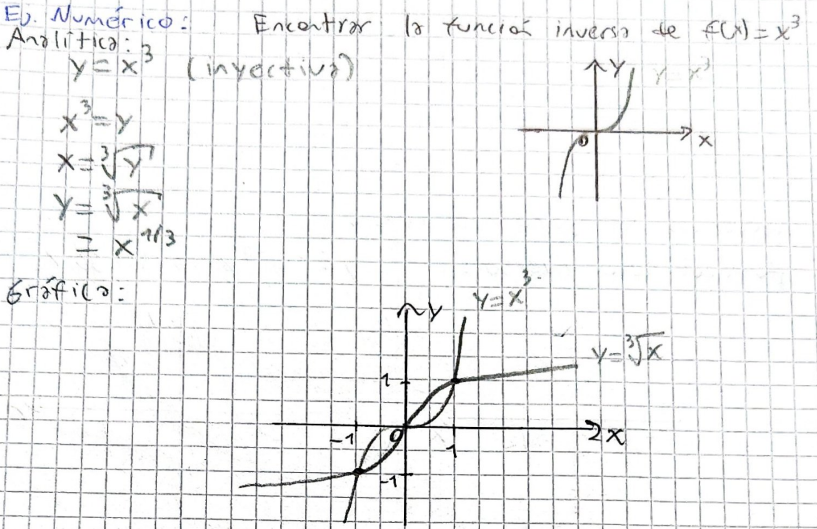 Ej. Numérico: Encontrar la función inversa de f(x) = x³
Analítica:
y = x³ (inyectiva)
y x³
x³ = y
x = ³√y
y = ³√x
= x^1/3
Gráfica:
y
0
x
y = x³
y
y = ³√x
1
-1
0
1
x
-1